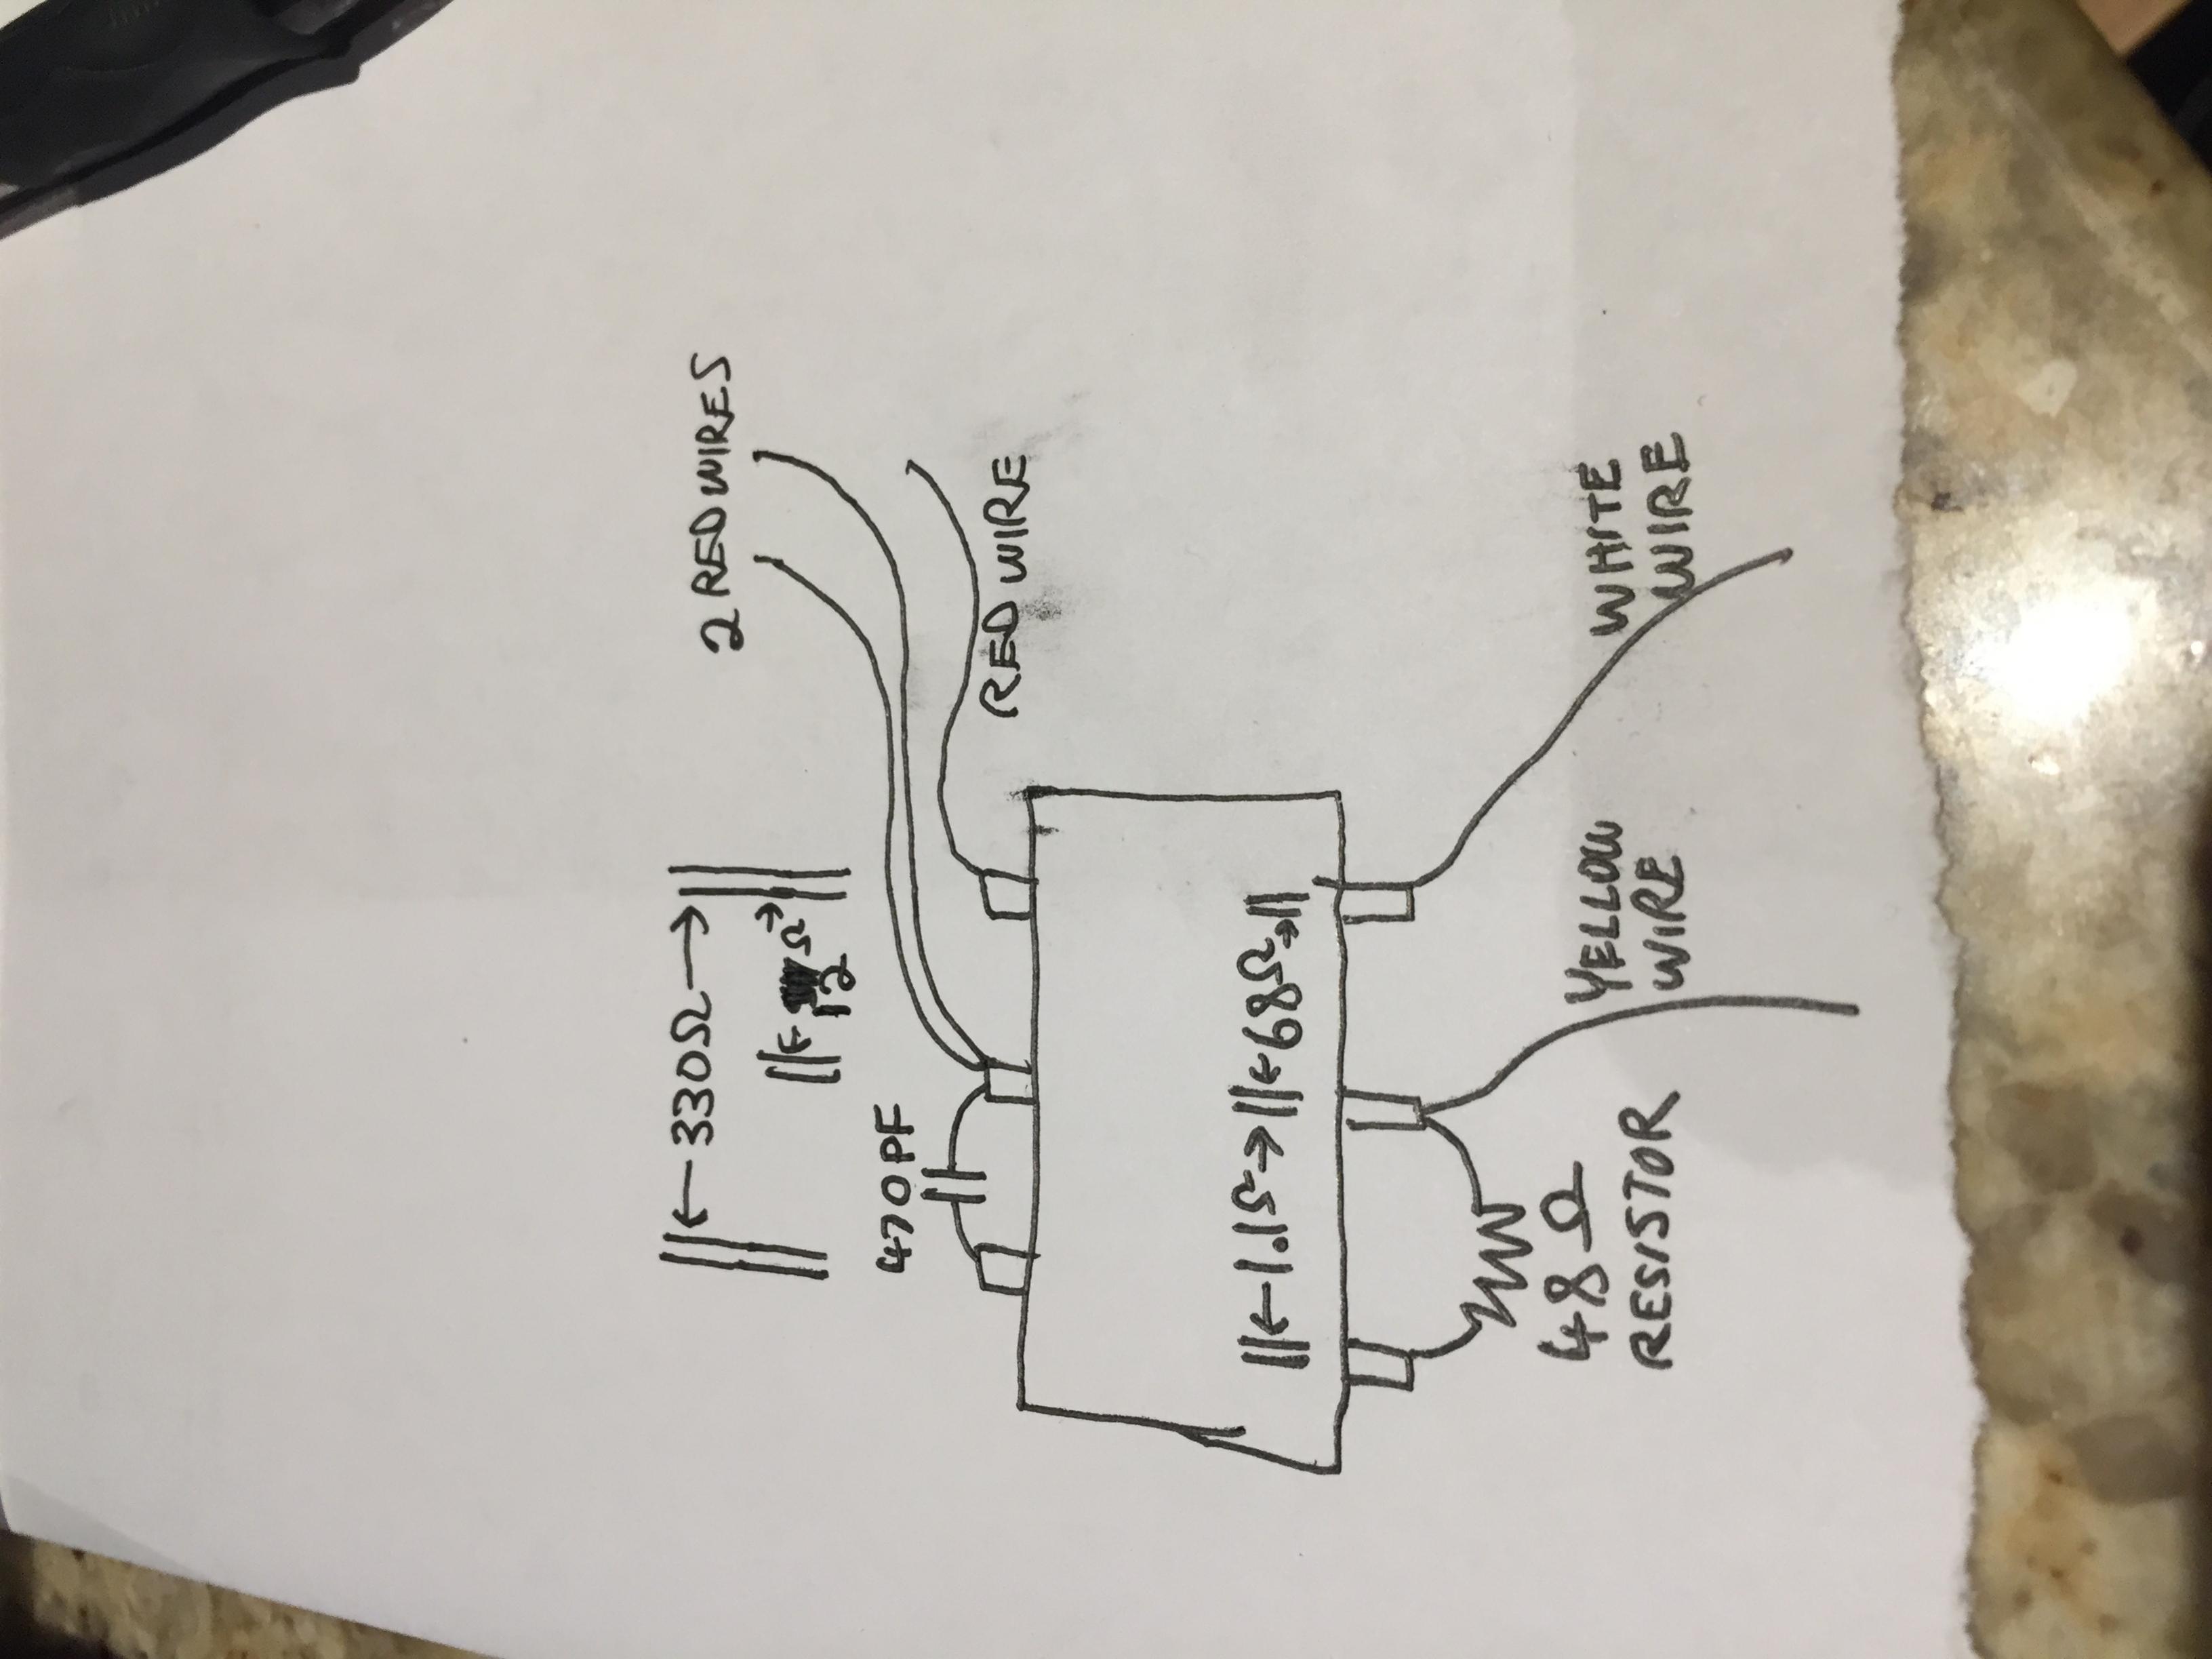 2 RED WIRES
←330Ω→
←12Ω→
470PF
RED WIRE
←1.15→
←68Ω→
WHITE
WIRE
YELLOW
WIRE
48Ω
RESISTOR